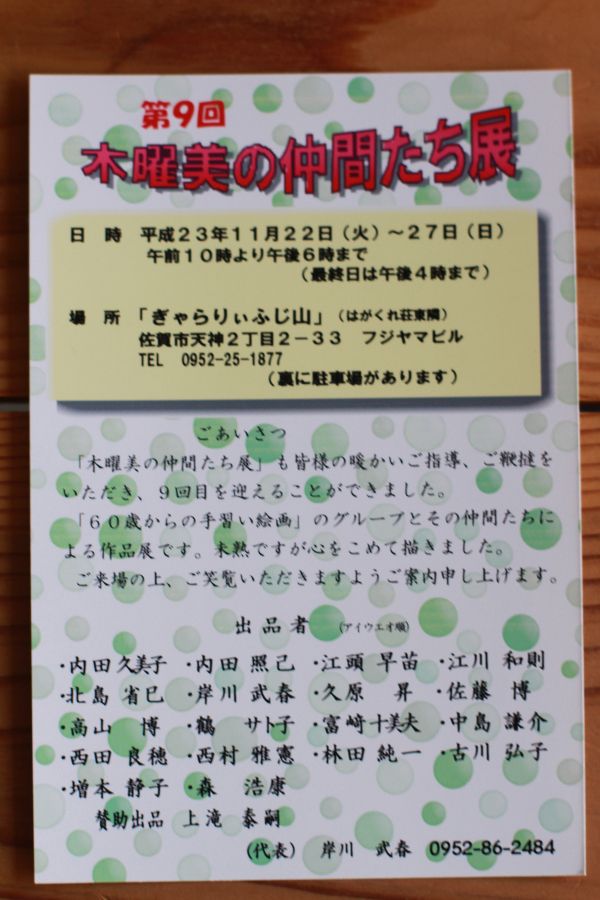 第9回
木曜美の仲間たち展
日　時　平成２３年１１月２２日（火）～２７日（日）
午前１０時より午後６時まで
（最終日は午後４時まで）
場　所　「ぎゃらりぃふじ山」（はがくれ荘東隣）
佐賀市天神２丁目２－３３　フジヤマビル
TEL　0952-25-1877
（裏に駐車場があります）
ごあいさつ
「木曜美の仲間たち展」も皆様の暖かいご指導、ご鞭撻を
いただき、９回目を迎えることができました。
「６０歳からの手習い絵画」のグループとその仲間たちに
よる作品展です。未熟ですが心をこめて描きました。
ご来場の上、ご笑覧いただきますようご案内申し上げます。
出品者　（アイウエオ順）
・内田久美子　・内田 照己　・江頭 早苗　・江川 和則
・北島 省巳　・岸川 武春　・久原　昇　・佐藤 博
・高山　博　・鶴　サト子　・富崎十美夫　・中島 謙介
・西田 良穂　・西村 雅憲　・林田 純一　・古川 弘子
・増本 静子　・森　浩康
賛助出品　上滝　泰嗣
（代表）　岸川　武春　0952-86-2484